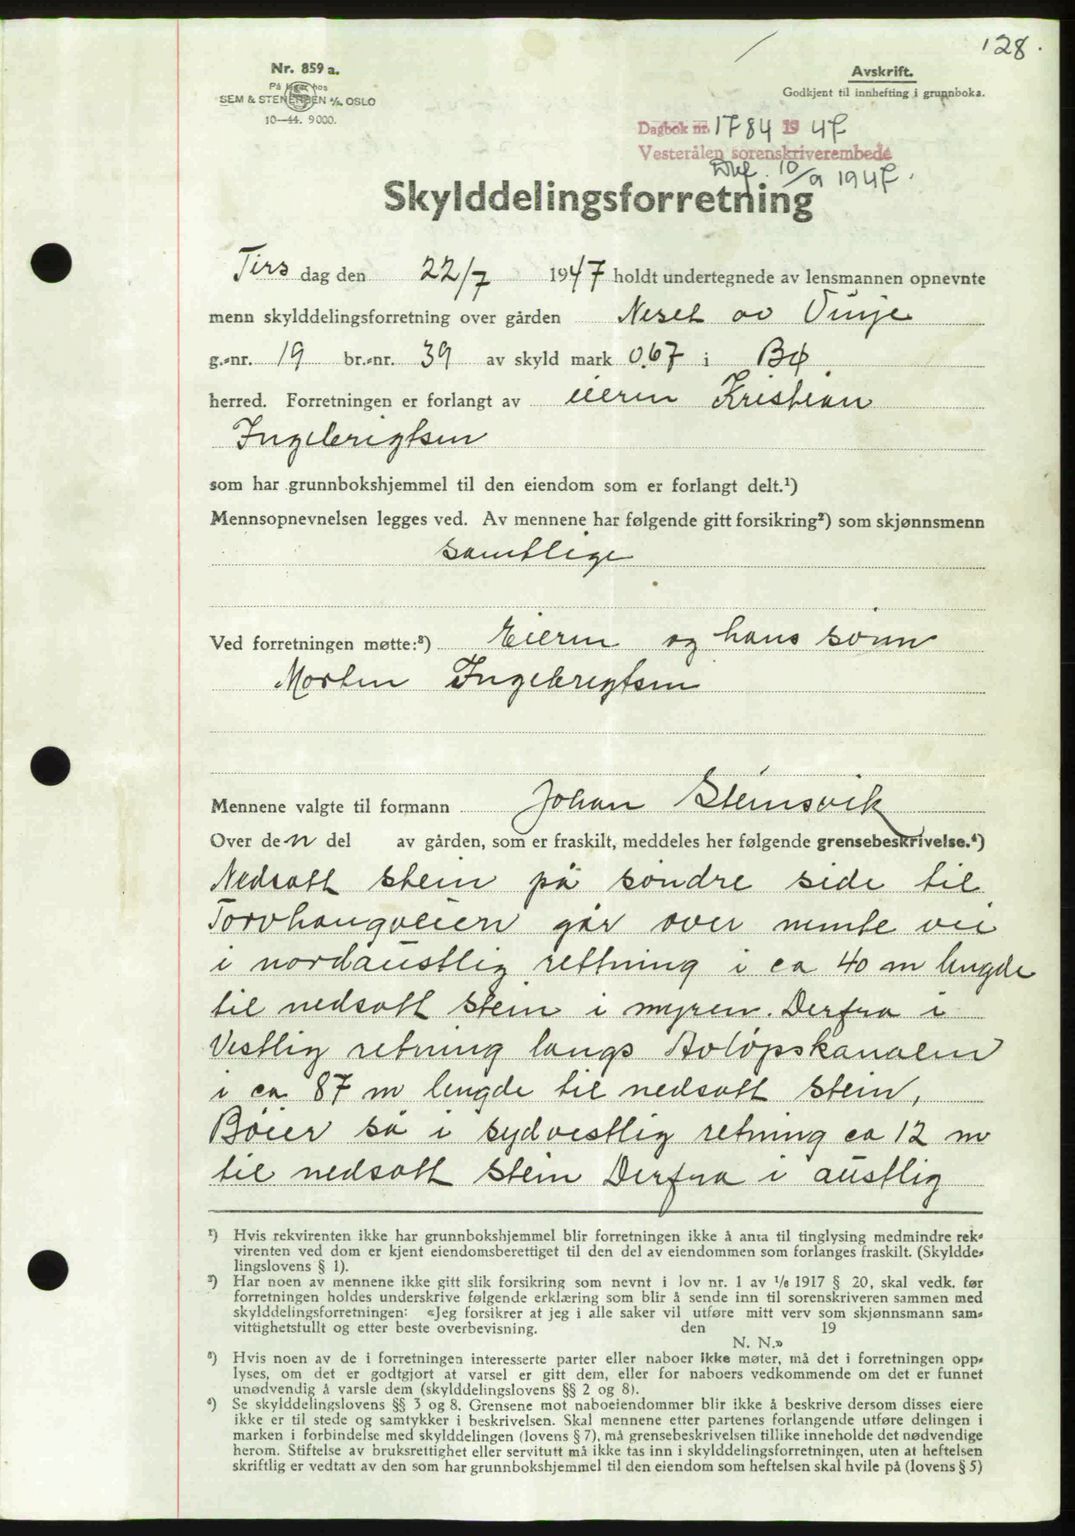 128.
Nr. 859 a.
På lager hos
SEM & STENERSEN A/S, OSLO
10—44. 9000.
Avskrift.
Godkjent til innhefting i grunnboka.
Dagbok nr. 1784 1947
Vesterålen sorenskriverembede
10/9 1947.
Skylddelingsforretning
Tirsdag den 22/7 1947 holdt undertegnede av lensmannen opnevnte
menn skylddelingsforretning over gården Neset av Vinje
g.-nr. 19 br.-nr. 39 av skyld mark 0.67 i Bø
herred. Forretningen er forlangt av eieren Kristian
Ingebrigtsen
som har grunnbokshjemmel til den eiendom som er forlangt delt.¹)
Mennsopnevnelsen legges ved. Av mennene har følgende gitt forsikring²) som skjønnsmenn
samtlige
Ved forretningen møtte:³) Eieren og hans sønn
Morten Ingebrigtsen
Mennene valgte til formann Johan Steinsvik
Over den del av gården, som er fraskilt, meddeles her følgende grensebeskrivelse.⁴)
Nedsatt stein på søndre side til
Torvhaugveien går over nemte vei
i nordaustlig rettning i ca 40 m lengde
til nedsatt stein i myren. Derfra i
Vestlig retning langs Avløpskanalen
i ca 87 m lengde til nedsatt stein,
Bøier så i sydvestlig retning ca 12 m
til nedsatt stein Derfra i austlig
¹) Hvis rekvirenten ikke har grunnbokshjemmel blir forretningen ikke å anta til tinglysing medmindre rek-
virenten ved dom er kjent eiendomsberettiget til den del av eiendommen som forlanges fraskilt. (Skyldde-
lingslovens § 1).
²) Har noen av mennene ikke gitt slik forsikring som nevnt i lov nr. 1 av 1/8 1917 § 20, skal vedk. før
forretningen holdes underskrive følgende erklæring som blir å sende inn til sorenskriveren sammen med
skylddelingsforretningen: «Jeg forsikrer at jeg i alle saker vil utføre mitt verv som skjønnsmann sam-
vittighetsfullt og etter beste overbevisning. den 19
N. N.»
³) Hvis noen av de i forretningen interesserte parter eller naboer ikke møter, må det i forretningen opp-
lyses, om det er godtgjort at varsel er gitt dem, eller for naboers vedkommende om det er funnet
unødvendig å varsle dem (skylddelingslovens §§ 2 og 8).
⁴) Se skylddelingslovens §§ 3 og 8. Grensene mot naboeiendommer blir ikke å beskrive dersom disses eiere
ikke er til stede og samtykker i beskrivelsen. Skal mennene etter partenes forlangende utføre delingen i
marken i forbindelse med skylddelingen (lovens § 7), må grensebeskrivelsen tillike inneholde det nødvendige
herom. Stiftelse av bruksrettighet eller servitutt må ikke tas inn i skylddelingsforretningen, uten at heftelsen
skriftlig er vedtatt av den som har grunnbokshjemmel til den eiendom som heftelsen skal hvile på (lovens § 5)